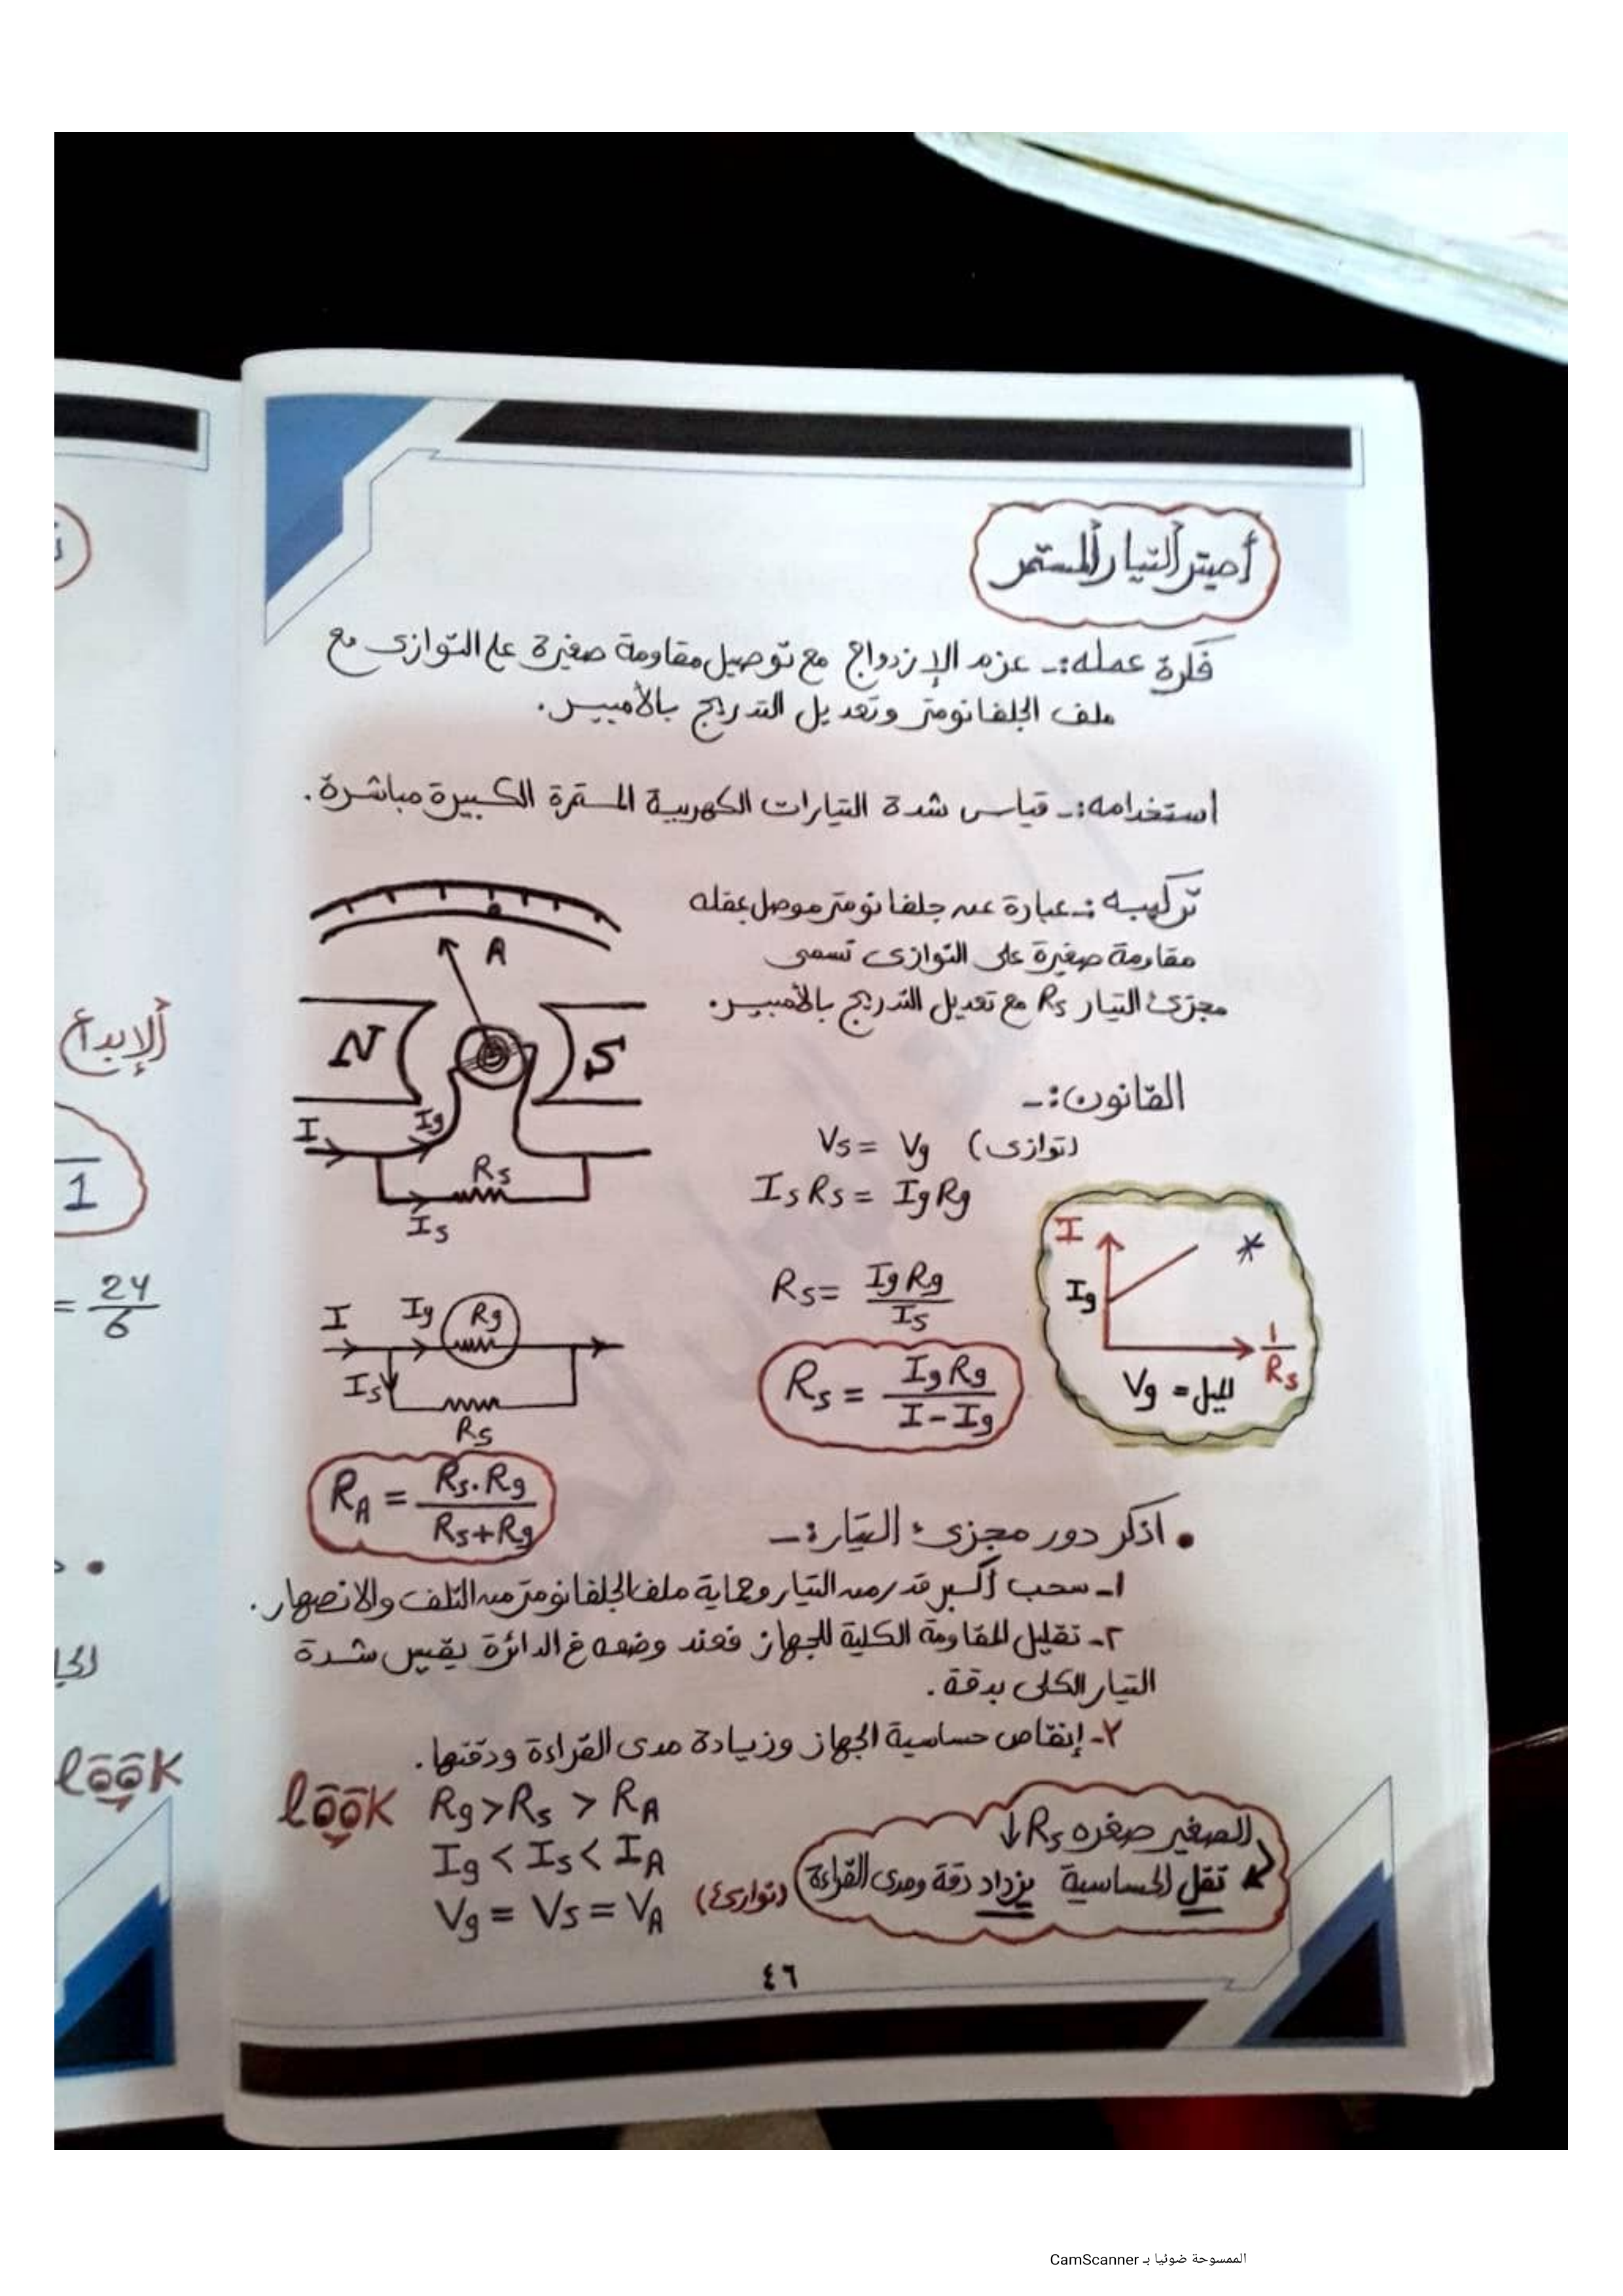 أميتر التيار المستمر
فكرة عمله:- عزم الإزدواج مع توصيل مقاومة صغيرة على التوازى مع
ملف الجلفانومتر وتعديل التدريج بالأمبير.
استخدامه:- قياس شدة التيارات الكهربية المستمرة الكبيرة مباشرة.
تركيبه:- عبارة عن جلفانومتر موصل بملفه
مقاومة صغيرة على التوازى تسمى
مجزئ التيار Rs مع تعديل التدريج بالأمبير.
A
N S
I Ig
Rs
Is
القانون:-
Vs = Vg (توازى)
Is Rs = Ig Rg
Rs = Ig Rg / Is
Rs = Ig Rg / I - Ig
I
*
Ig
1 / Rs
الميل = Vg
I Ig Rg
Is
Rs
RA = Rs . Rg / Rs + Rg
• اذكر دور مجزئ التيار:-
١- سحب أكبر قدر من التيار وحماية ملف الجلفانومتر من التلف والانصهار.
٢- تقليل المقاومة الكلية للجهاز فعند وضعه فى الدائرة يقيس شدة
التيار الكلى بدقة.
٢- إنقاص حساسية الجهاز وزيادة مدى القراءة ودقتها.
look Rg > Rs > RA
Ig < Is < IA
Vg = Vs = VA (توازى)
الصغير صغره Rs ↓
تقل الحساسية يزداد دقة ومدى القراءة
٤٦
الإبداع
1
= 24 / 6
look
الممسوحة ضوئيا بـ CamScanner